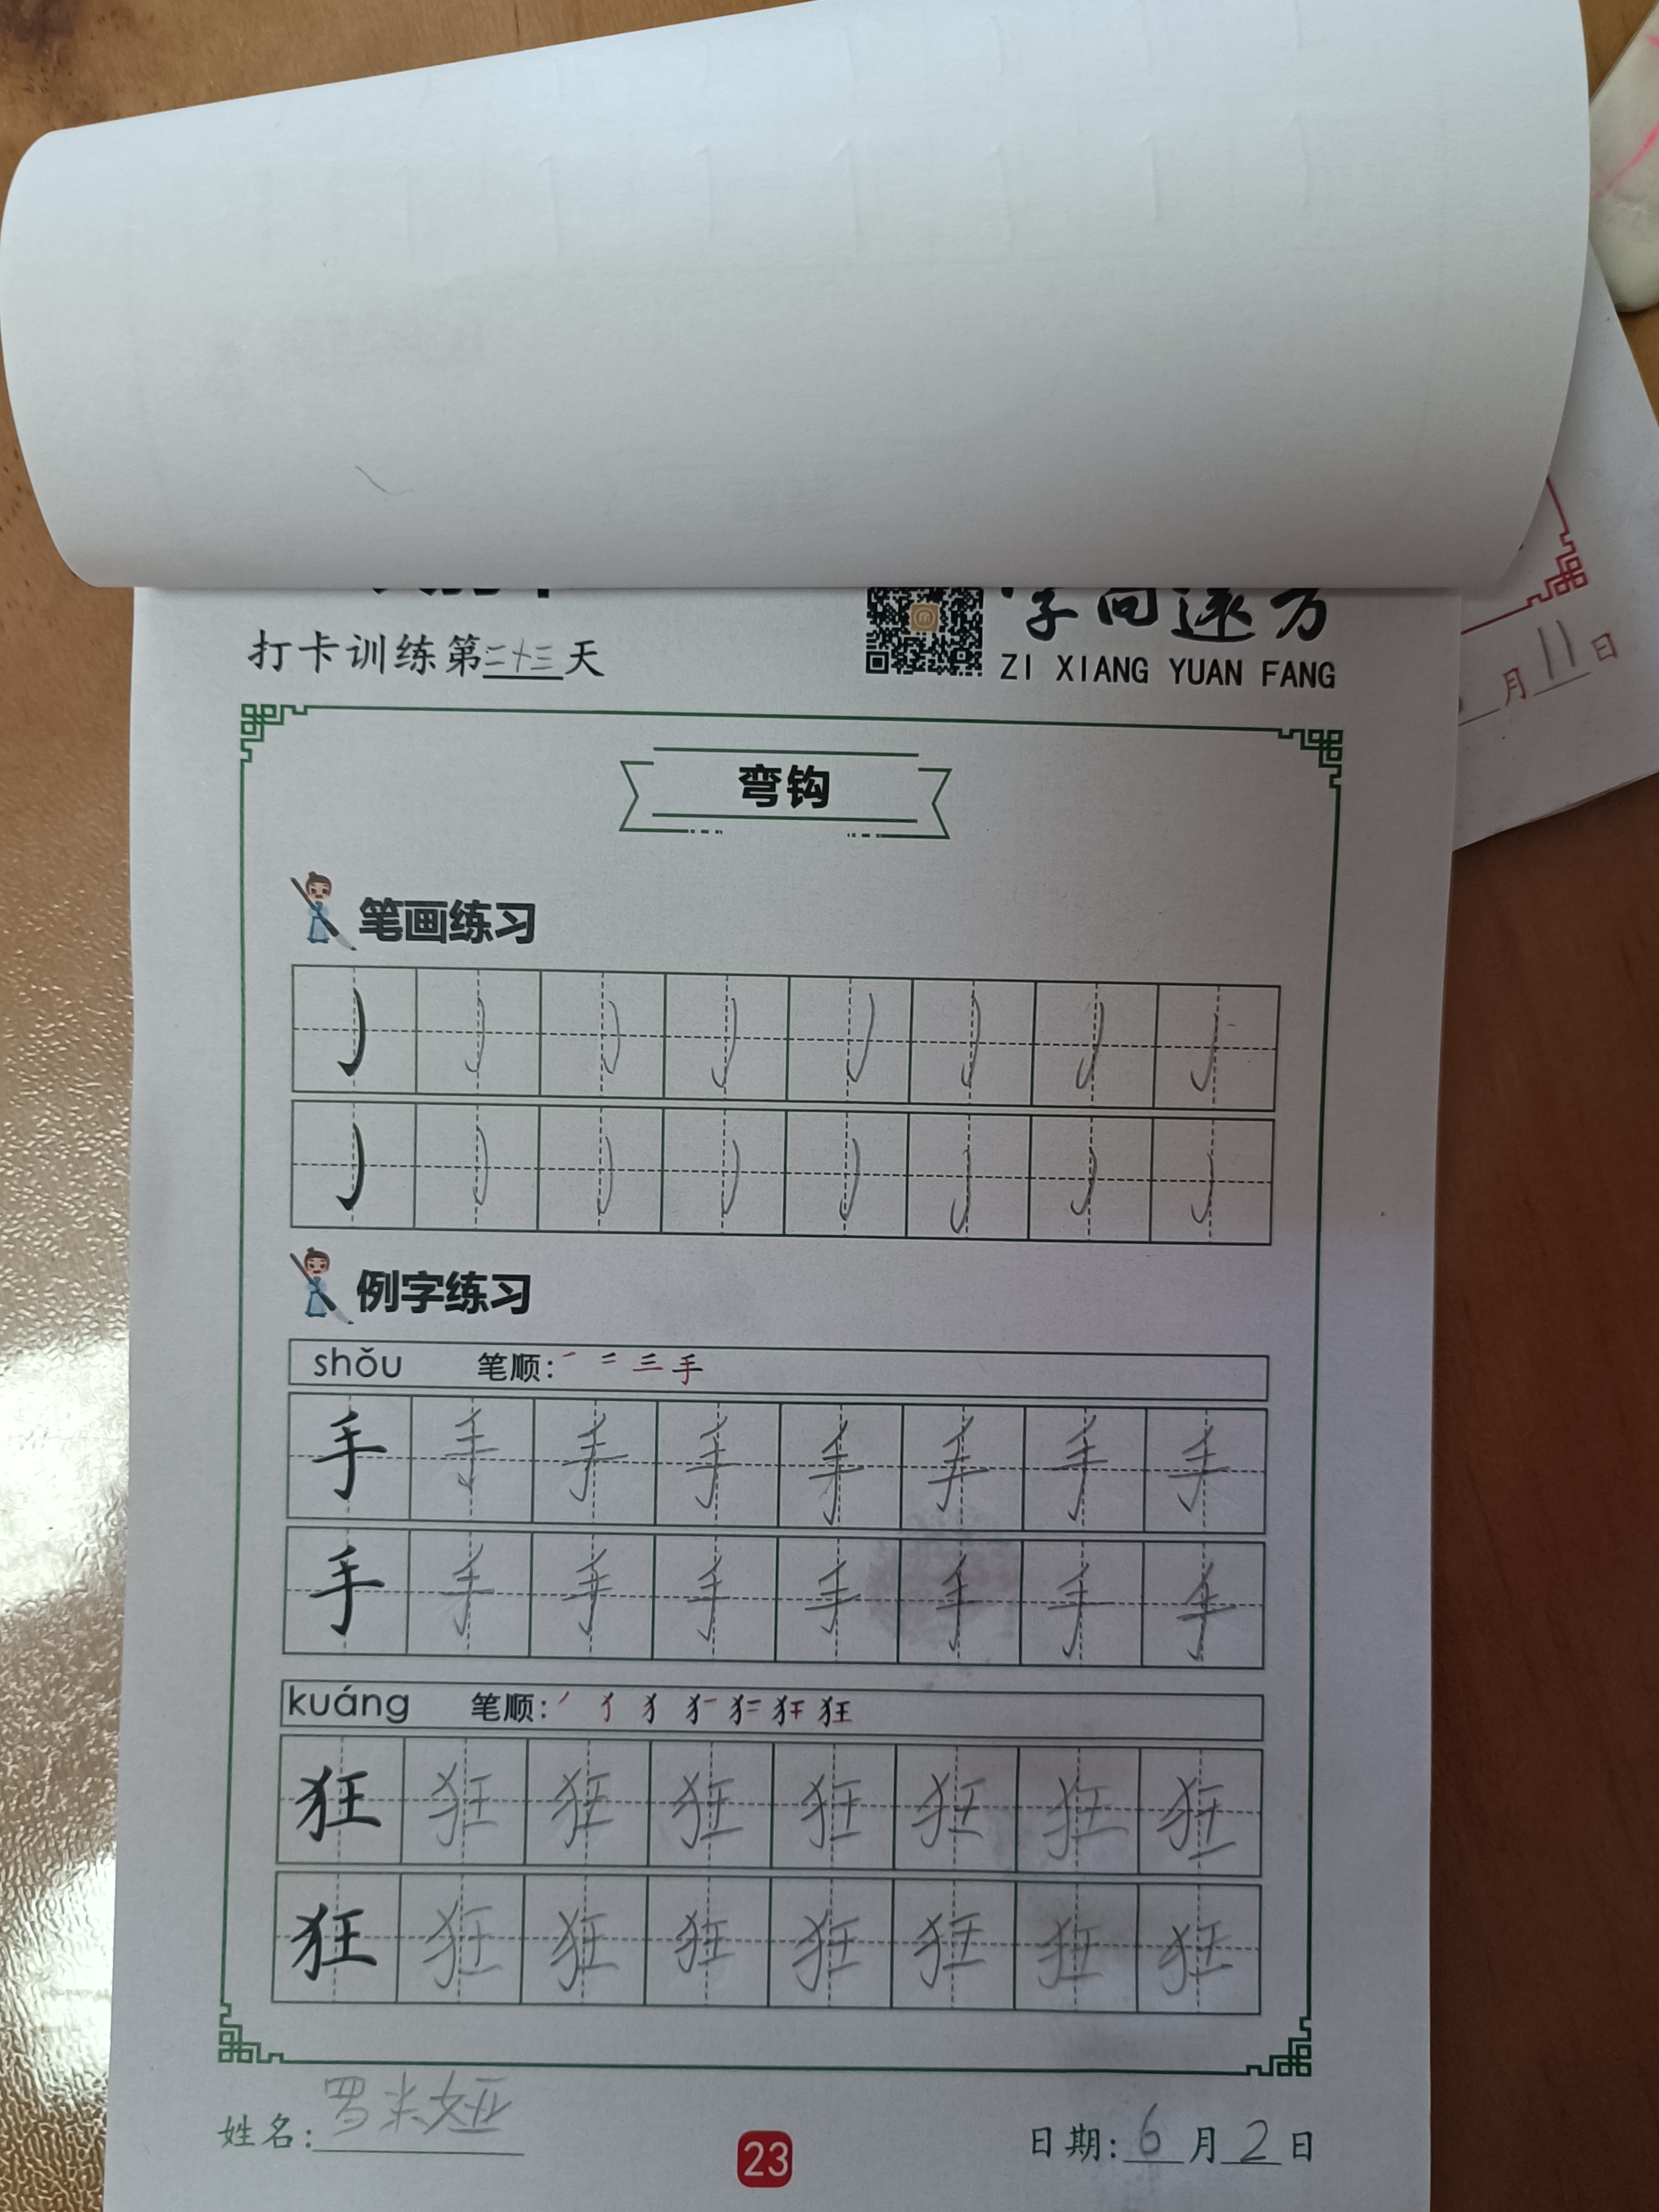 字向远方
打卡训练第二十三天
ZI XIANG YUAN FANG
月11日
弯钩
笔画练习
例字练习
shǒu 笔顺: 一 二 三 手
手 手 手 手 手 手 手 手
手 手 手 手 手 手 手 手
kuáng 笔顺: 狂
狂 狂 狂 狂 狂 狂 狂 狂
狂 狂 狂 狂 狂 狂 狂 狂
姓名: 罗米娅
23
日期: 6月2日